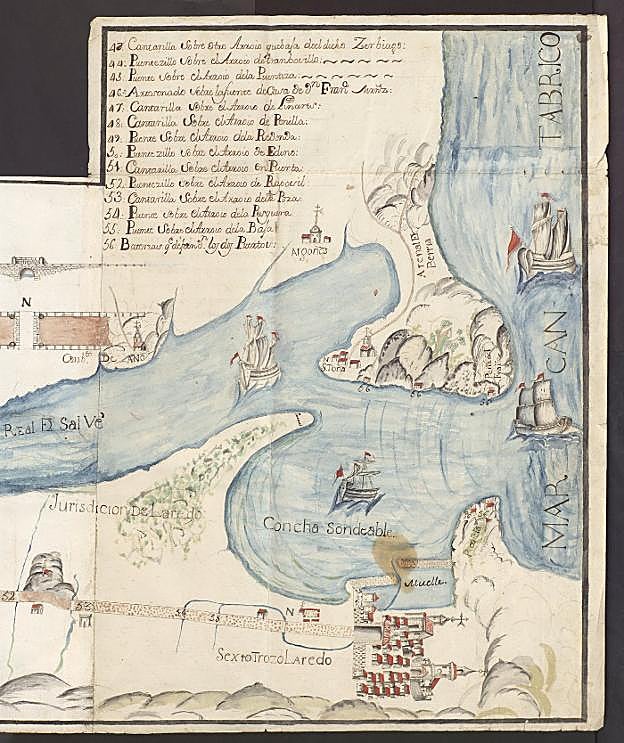 43: Cantarilla Sobre otro Arroio que baja del dicho Zerbiago:
44: Puentezillo Sobre el Arroio de trambocillo:
45: Puente Sobre el Arroio de la Puentaza:
46: Sobre la fuente de Casa de Dn. Franco.
47: Cantarilla Sobre el Arroio de Linares:
48: Cantarilla Sobre el Arroio de Penilla:
49: Puente Sobre el Arroio de la Redonda:
50: Puentezillo Sobre el Arroio de Edino:
51: Cantarilla Sobre el Arroio en Puerta:
52: Puentezillo Sobre el Arroio de
53: Cantarilla Sobre el Arroio de la Poza:
54: Puente Sobre el Arroio de la Pesquera
55: Puente Sobre el Arroio de la Baja:
56 Baterias q. defienden. los dos Puertos:
MAR CAN TABRICO
Argoños
Arenal D Berria
N
DE ANO
Stoña
56
56
56
Real DE Salve
Jurisdicion De Laredo
Concha Sondeable.
Muelle.
52
53
54
55
N
Sexto Trozo Laredo